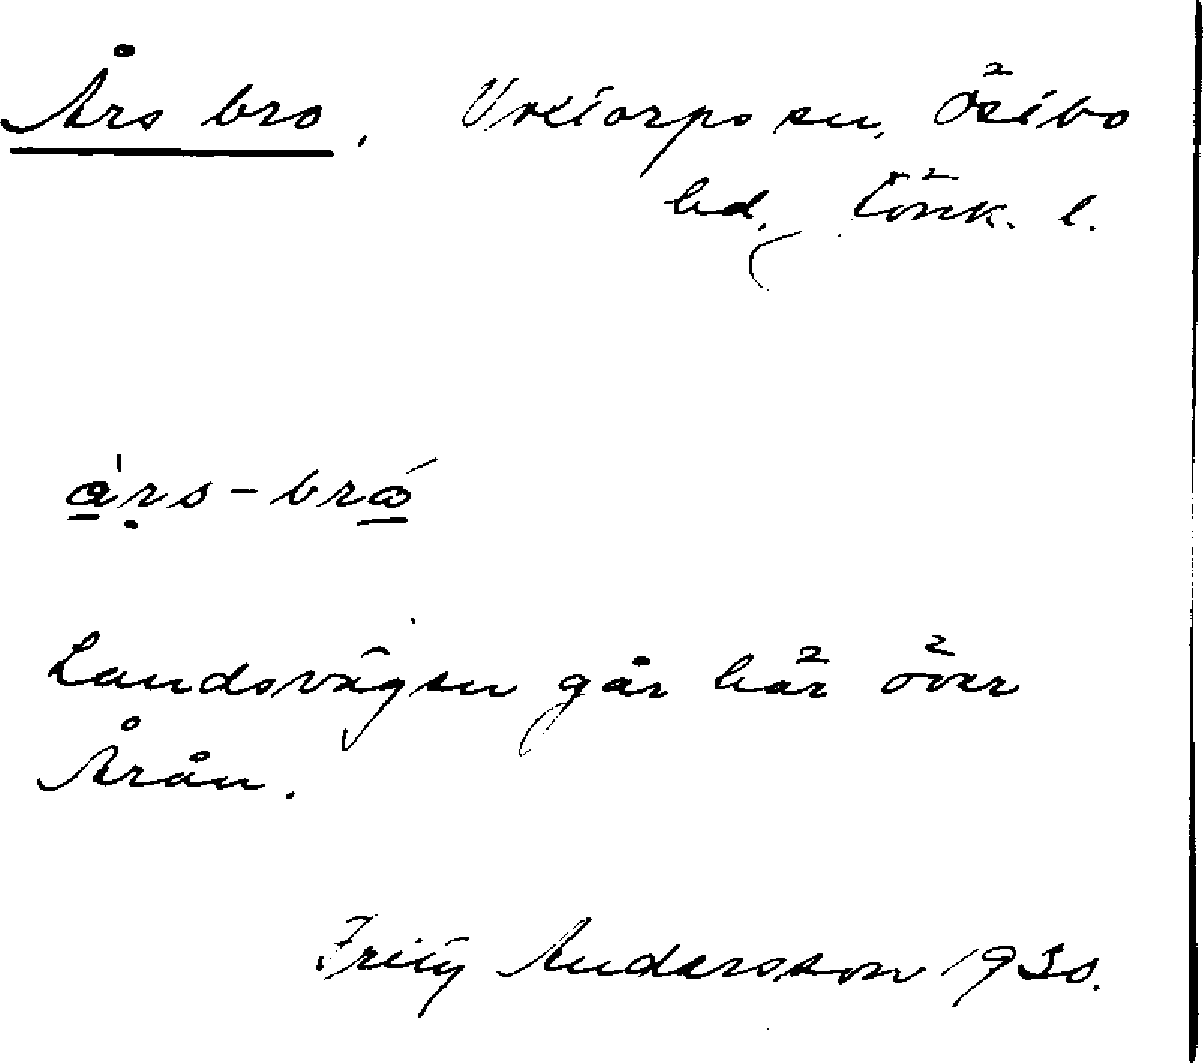 Års bro. Voxtorps sn, Östbo
hd, Jönk. l.
års-brö
Landsvägen går här över
Årån.
Fritz Andersson 1930.